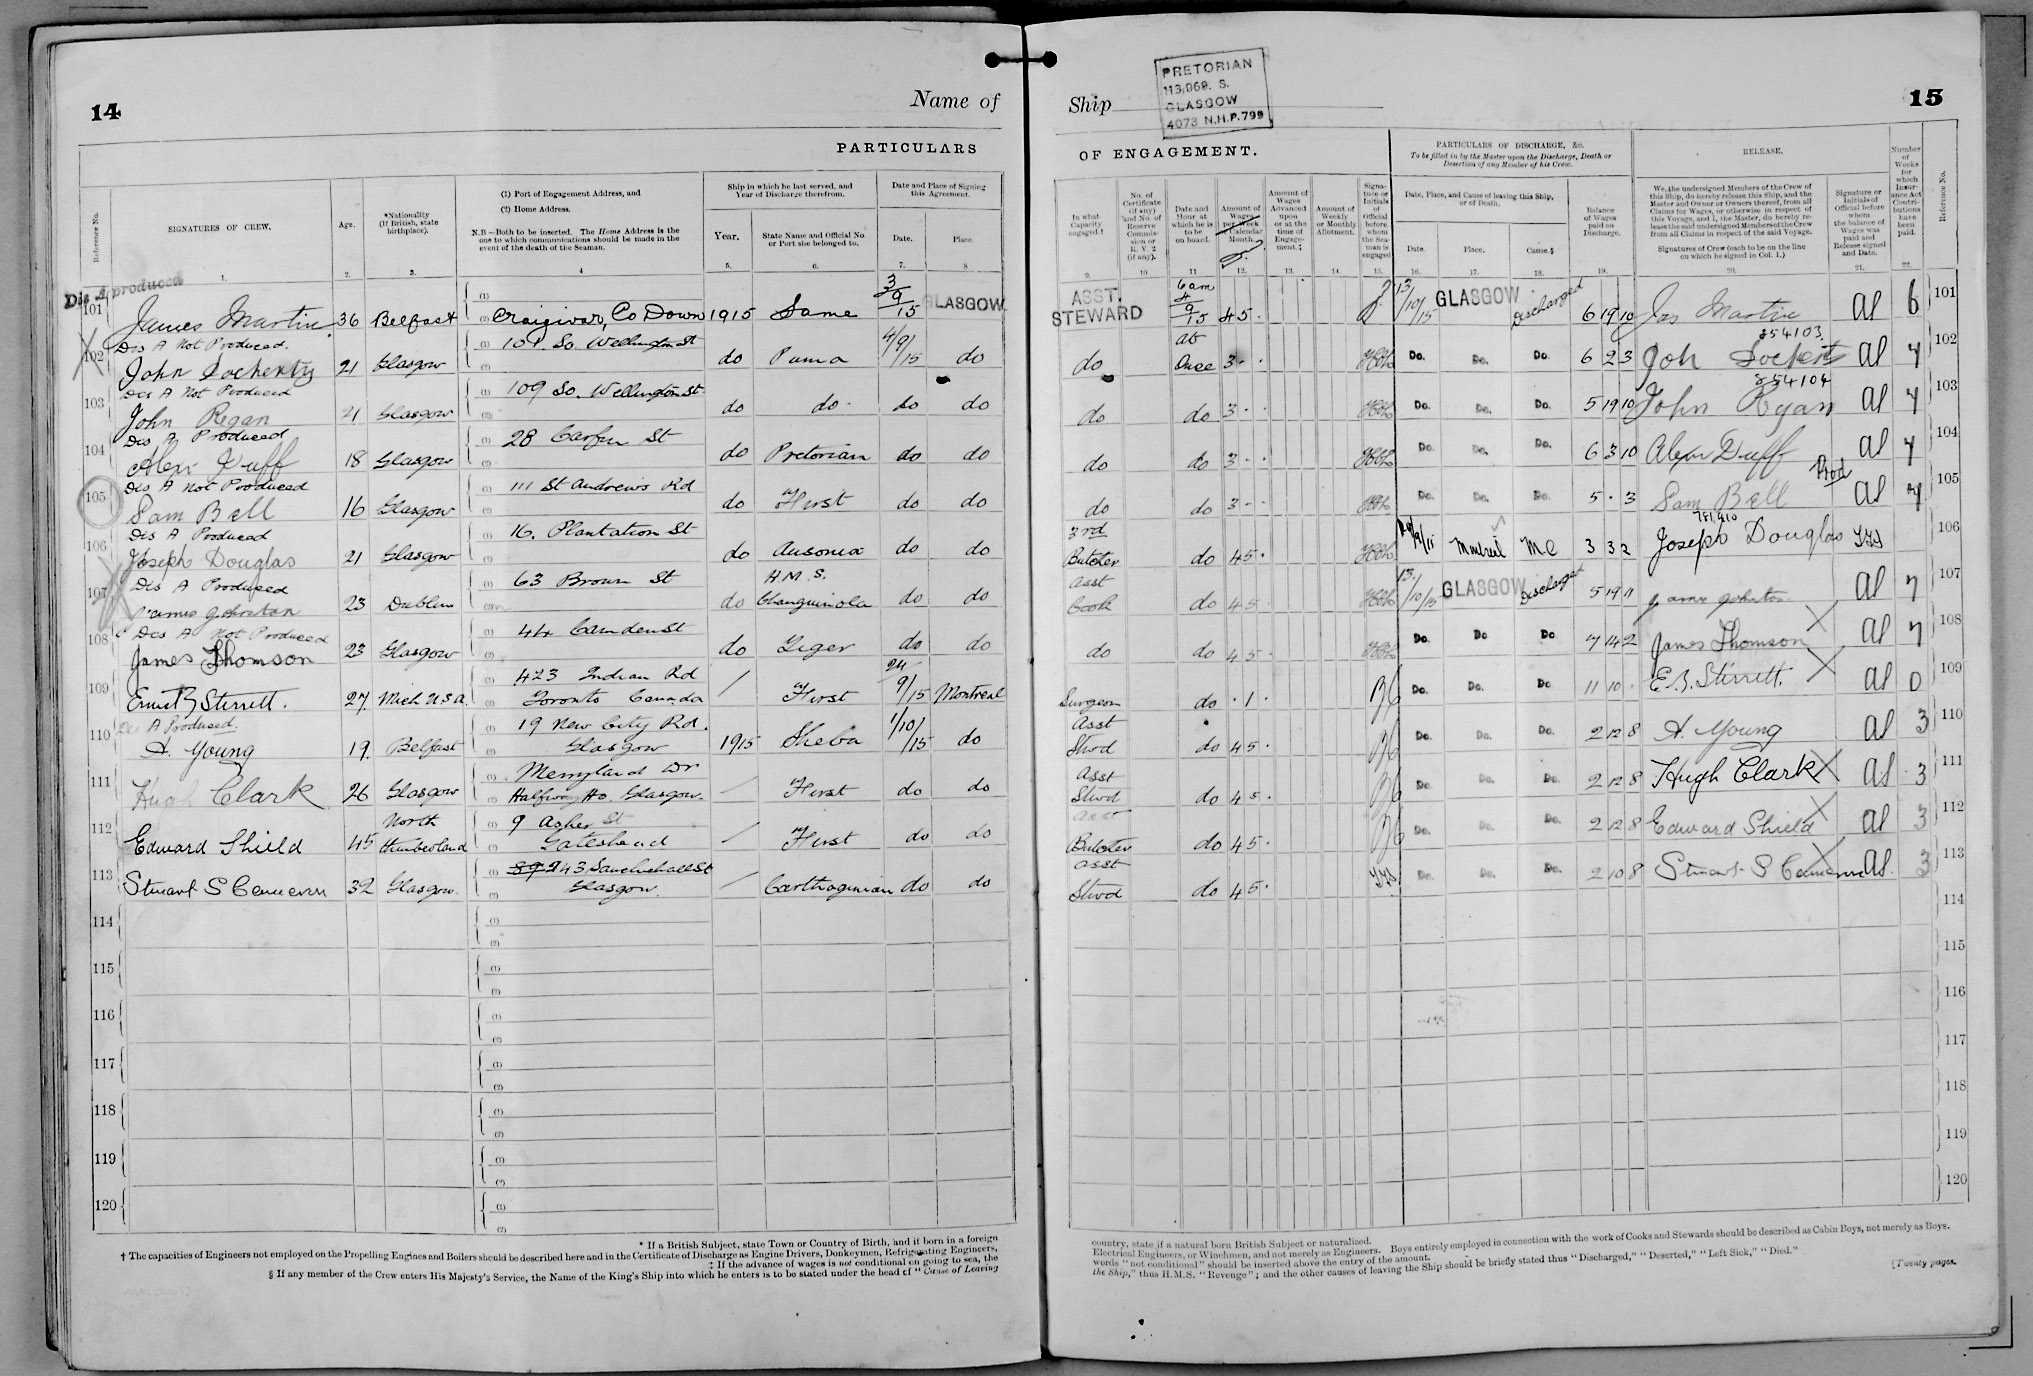 14
Name of
PARTICULARS
Reference No.
SIGNATURES OF CREW.
Age.
*Nationality
(If British, state
birthplace).
(1) Port of Engagement Address, and
(2) Home Address.
N.B.—Both to be inserted. The Home Address is the
one to which communications should be made in the
event of the death of the Seaman.
Ship in which he last served, and
Year of Discharge therefrom.
Year.
State Name and Official No.
or Port she belonged to.
Date and Place of Signing
this Agreement.
Date.
Place.
1. 2. 3. 4 5. 6. 7. 8
Dis A produced
101 James Martin 36 Belfast Craigivar, Co Down 1915 Same 3/9/15 GLASGOW
Dis A Not Produced.
102 John Docherty 21 Glasgow 101 So. Wellington St do Puma 4/9/15 do
Dis A Not Produced
103 John Regan 21 Glasgow 109 So. Wellington St. do do do do
Dis A Produced
104 Alex Duff 18 Glasgow 28 Carfin St do Pretorian do do
Dis A Not Produced
105 Sam Bell 16 Glasgow 111 St Andrews Rd do First do do
Dis A Produced
106 Joseph Douglas 21 Glasgow 16. Plantation St do Ausonia do do
Dis A Produced
107 James Johnston 23 Dublin 63 Brown St do H.M.S. Changuinola do do
Dis A Not Produced
108 James Thomson 23 Glasgow 44 Camden St do Tiger do do
109 Ernest B Sterrett. 27 Mich U.S.A. 423 Indian Rd / First 24/9/15 Montreal
Toronto Canada
Dis A Produced.
110 A. Young 19. Belfast 19 New City Rd. 1915 Sheba 1/10/15 do
Glasgow
111 Hugh Clark 26 Glasgow Merryland Dr First do do
Halfway Ho. Glasgow.
112 Edward Shield 45 North Humberland 9 Asher St First do do
Gateshead
113 Stuart S Cameron 32 Glasgow. 243 Sauchiehall St Carthaginian do do
Glasgow
114
115
116
117
118
119
120
* If a British Subject, state Town or Country of Birth, and if born in a foreign
† The capacities of Engineers not employed on the Propelling Engines and Boilers should be described here and in the Certificate of Discharge as Engine Drivers, Donkeymen, Refrigerating Engineers,
‡ If the advance of wages is not conditional on going to sea, the
§ If any member of the Crew enters His Majesty's Service, the Name of the King's Ship into which he enters is to be stated under the head of "Cause of Leaving
Ship
PRETORIAN
113,969. S.
GLASGOW
4073 N.H.P. 799
15
OF ENGAGEMENT.
PARTICULARS OF DISCHARGE, &c.
To be filled in by the Master upon the Discharge, Death or
Desertion of any Member of his Crew.
RELEASE.
In what
Capacity
engaged.†
No. of
Certificate
(if any)
and No. of
Reserve
Commis-
sion or
R. V. 2
(if any).
Date and
Hour at
which he is
to be
on board.
Amount of
Wages
per Week
or Calendar
Month.
Amount of
Wages
Advanced
upon
or at the
time of
Engage-
ment.‡
Amount of
Weekly
or Monthly
Allotment.
Signa-
ture or
Initials
of
Official
before
whom
the Sea-
man is
engaged
Date, Place, and Cause of leaving this Ship,
or of Death.
Date.
Place.
Cause.§
Balance
of Wages
paid on
Discharge.
We, the undersigned Members of the Crew of
this Ship, do hereby release this Ship, and the
Master and Owner or Owners thereof, from all
Claims for Wages, or otherwise in respect of
this Voyage, and I, the Master, do hereby re-
lease the said undersigned Members of the Crew
from all Claims in respect of the said Voyage.
Signatures of Crew (each to be on the line
on which he signed in Col. 1.)
Signature or
Initials of
Official before
whom
the balance of
Wages was
paid and
Release signed
and Date.
Number
of
Weeks
for
which
Insur-
ance Act
Contri-
butions
have
been
paid.
Reference No.
9. 10 11 12. 13. 14. 15. 16. 17. 18. 19. 20. 21. 22.
ASST. STEWARD 6am 4/9/15 45. 13/10/15 GLASGOW Discharged 6 19 10 Jas Martin al 6 101
854103
do at Once 3 Do. Do. Do. 6 2 3 Joh Docherty al 4 102
854104
do do 3 Do. Do. Do. 5 19 10 John Regan al 4 103
do do 3 Do. Do. Do. 6 3 10 Alexr Duff al 4 104
do do 3 Do. Do. Do. 5 . 3 Sam Bell al 4 105
781,910
3rd Butcher do 45. Montreal 3 3 2 Joseph Douglas 106
Asst Cook do 45 13/10/15 GLASGOW Discharged 5 19 11 James Johnston al 4 107
do do 45. Do. Do Do 4 14 2 James Thomson X al 4 108
Surgeon do 1 Do. Do. Do 11 10 E.B. Sterrett. X al 0 109
Asst Stwd do 45. Do. Do. Do. 2 12 8 A. Young al 3 110
Asst Stwd do 45. Do. Do. Do. 2 12 8 Hugh Clark X al 3 111
Asst Butcher do 45. Do. Do. Do. 2 12 8 Edward Shield X al 3 112
Asst Stwd do 45. Do. Do. Do. 2 10 8 Stuart S Cameron al. 3 113
114
115
116
117
118
119
120
country, state if a natural born British Subject or naturalized.
Electrical Engineers, or Winchmen, and not merely as Engineers. Boys entirely employed in connection with the work of Cooks and Stewards should be described as Cabin Boys, not merely as Boys.
words "not conditional" should be inserted above the entry of the amount.
the Ship," thus H.M.S. "Revenge"; and the other causes of leaving the Ship should be briefly stated thus "Discharged," "Deserted," "Left Sick," "Died."
[Twenty pages.